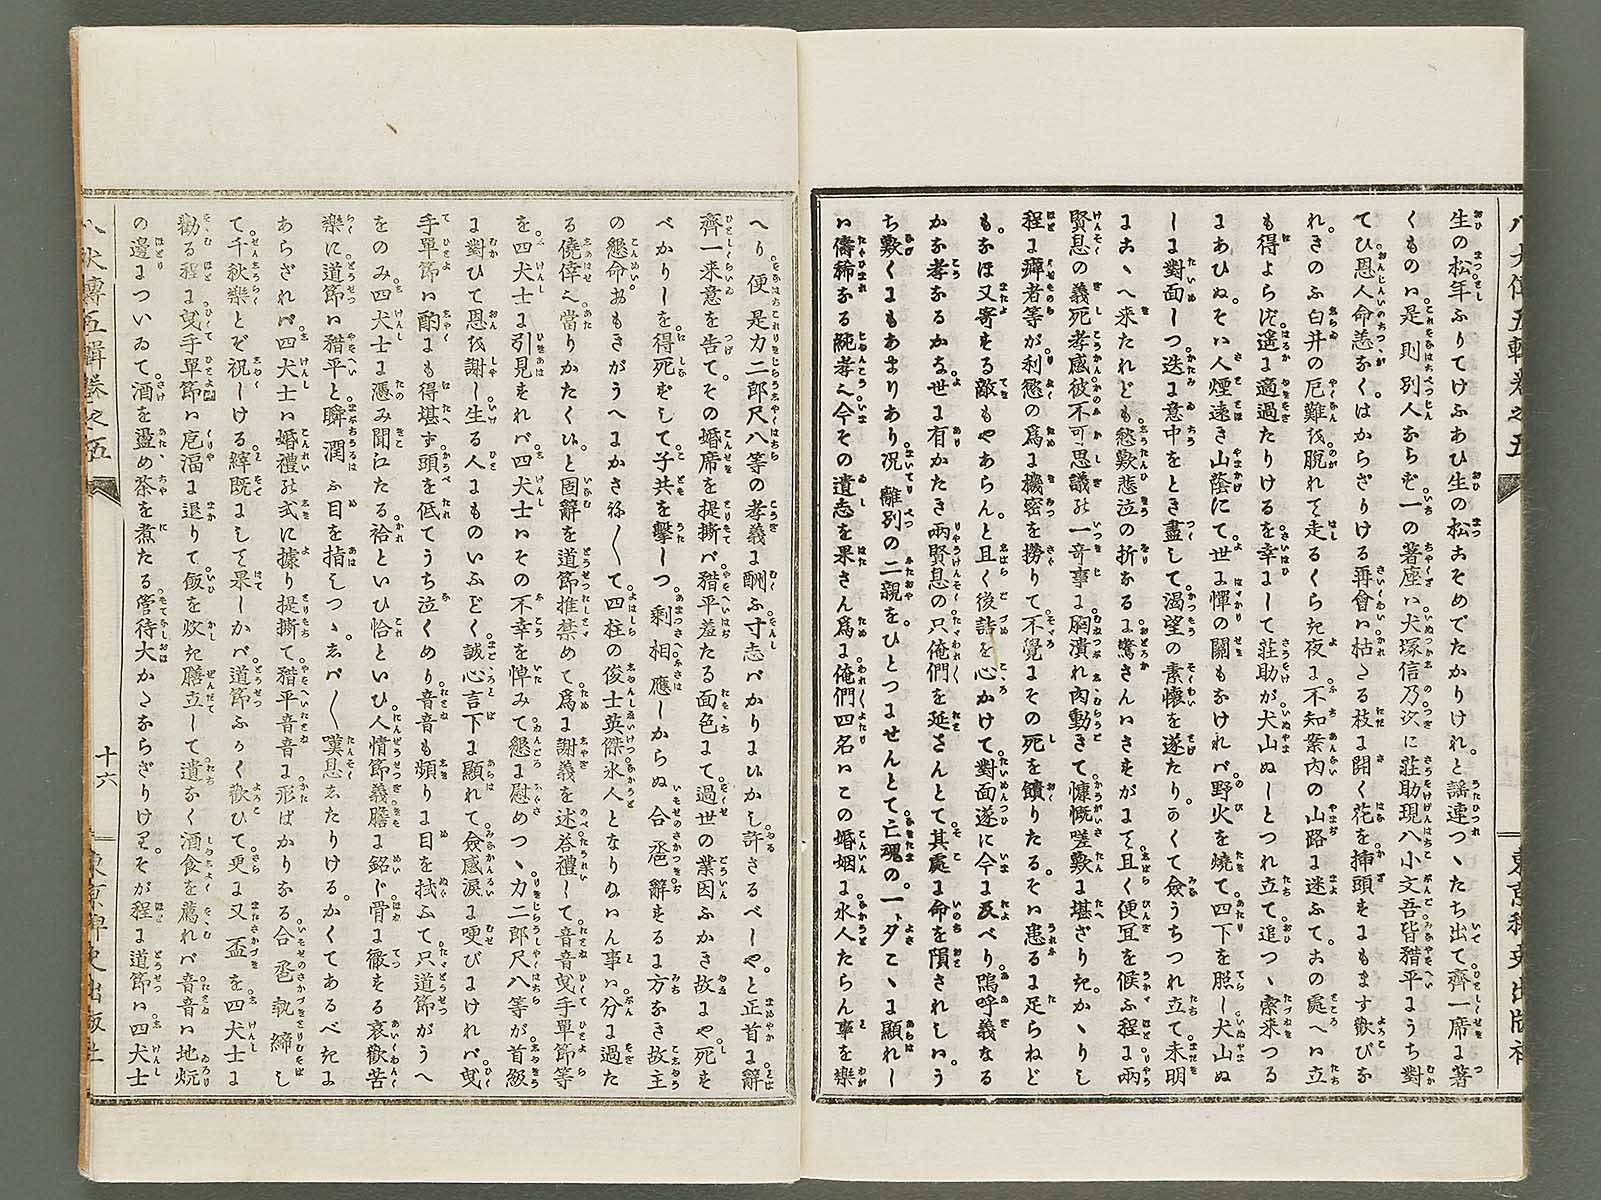 生の松年ふりてけふあひ生の松おそめでたかりけれ。と謡連つゝたち出て齊一席に著
くものハ。是則別人ならず。一の著座ハ犬塚信乃次に荘助現八小文吾皆𤢖平にうち對
てひ。恩人命恙なくはからざりける再會ハ枯たる枝に開く花を挿頭をにもます歡びな
れ。きのふ白井の厄難を脱れて走るくらき夜に不知案内の山路に迷ふてこの處へハ立
も得よらず遙に適過たりけるを幸にして荘助が犬山ぬしとつれ立て追つゝ索來つる
にあひぬ。そハ人煙遠き山蔭にて世に憚の關もなけれバ野火を燒て四下を照し犬山ぬ
しに對面しつ迭に意中をとき盡して渇望の素懷を遂たり。かくて僉うちつれ立て未明
にこゝへ來たれども愁歎悲泣の折なるに驚さんハさすがにて且く便宜を候ふ程に兩
賢息の義死孝感彼不可思議の一奇事に胸潰れ肉動きて慷慨嗟歎に堪ざりき。かゝりし
程に癖者等が利慾の爲に機密を撈りて不覺にその死を饋りたる。そハ患るに足らねど
も。なほ又寄する敵もやあらんと且く後詰を心がけて對面遂に今に及べり嗚呼義なる
かな孝なるかな。世に有がたき兩賢息の只俺們を延さんとて其處に命を隕されしハ。う
ち歎くにもあまりあり。况離別の二親を。ひとつにせんとて亡魂の。一ト夕こゝに顯れし
ハ儔稀なる純孝也。今その遺志を果さん爲に俺們四名ハこの婚姻に氷人たらん事を樂
へり。便是力二郎尺八等の孝義に酬ふ寸志バかりに侍かし。許さるべしや。と正首に辭
齊一來意を告てその婚席を提撕バ𤢖平羞たる面色にて過世の業因ふかき故にや。死を
べかりしを得死ずして子共を撃しつ。剩相應しからぬ合巹辭するに方なき故主
の懇命おもきがうへにかさね〳〵て四柱の俊士英傑氷人となりぬハん事ハ分に過た
る僥倖也。當りがたくハ。と固辭を道節推禁めて爲に謝義を述荅禮して音音曳手單節等
を四犬士に引見すれバ。四犬士ハその不幸を悼みて懇に慰めつゝ力二郎尺八等が首級
に對ひて恩を謝し生る人にものいふごとく誠心言下に顯れて僉感涙に哽びにけれバ。曳
手單節ハ酌にも得堪ず頭を低てうち泣くめり音音も頻りに目を拭ふて只道節がうへ
をのみ四犬士に憑み聞江たる袷といひ恰といひ人情節義膽に銘じ骨に徹する哀歡苦
樂に道節ハ𤢖平と瞬潤ふ目を拍しつゝ。しバ〳〵嘆息したりける。かくてあるべきに
あらざれバ四犬士ハ婚禮の式に據り提撕て𤢖平音音に形ばかりなる合巹執締し
て千秋樂とぞ祝しける。縡既にして果しかバ。道節ふかく歡びて更に又盃を四犬士に
勸る程に曳手單節ハ庖湢に退りて飯を炊き膳立して遺なく酒食を薦れバ音音ハ地炕
の邊についゐて酒を盪め茶を煮たる管待大かたならざりけり。そが程に道節ハ四犬士
十六
東京稗史出版社